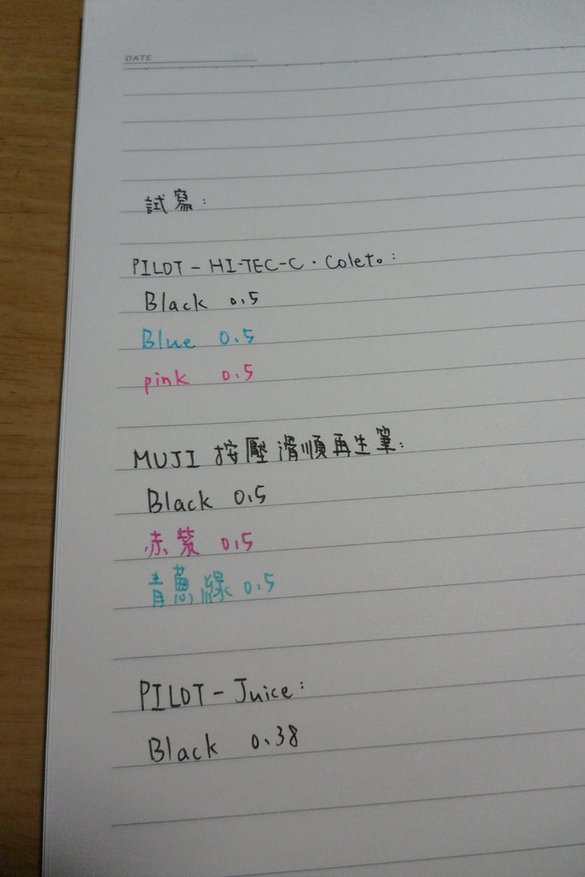 DATE
試寫:
PILOT-HI-TEC-C·Coleto:
Black 0.5
Blue 0.5
pink 0.5
MUJI 按壓滑順再生筆:
Black 0.5
赤紫 0.5
青蔥綠 0.5
PILOT-Juice:
Black 0.38